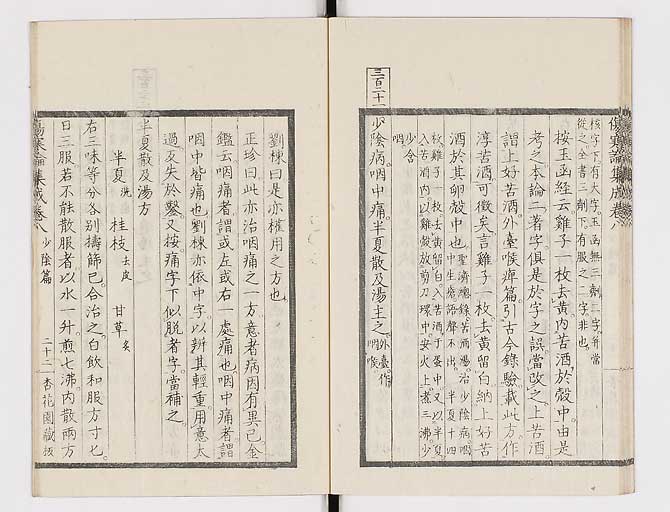 傷寒論集成卷八
核字下有大字玉函無三劑二字幷當
從之全書三劑下有服之二字非也
按玉函經云雞子一枚去黃內苦酒於殼中由是
考之本論二著字俱是於字之誤當改之上苦酒
謂上好苦酒外臺喉痺篇引古今錄驗載此方作
淳苦酒可徵矣言雞子一枚去黃留白納上好苦
酒於其卵殼中也聖濟總錄苦酒湯治少陰病咽
中生瘡語聲不出半夏十四
枚雞子一枚去黃留白入苦酒于蛋中又以半夏
入苦酒內以雞殼放剪刀環中安火上煮三沸少
少含
咽
三百二十一
少陰病咽中痛半夏散及湯主之外臺作
咽喉
劉棟曰是亦權用之方也
正珍曰此亦治咽痛之一方意者病因有異已金
鑑云咽痛者謂或左或右一處痛也咽中痛者謂
咽中皆痛也劉棟亦依中字以辨其輕重用意太
過反失於鑿又按痛字下似脫者字當補之
半夏散及湯方
半夏洗 桂枝去皮 甘草炙
右三味等分各別擣篩已合治之白飲和服方寸匕
日三服若不能散服者以水一升煎七沸內散兩方
傷寒論集成卷八 少陰篇 二十二 杏花園藏板